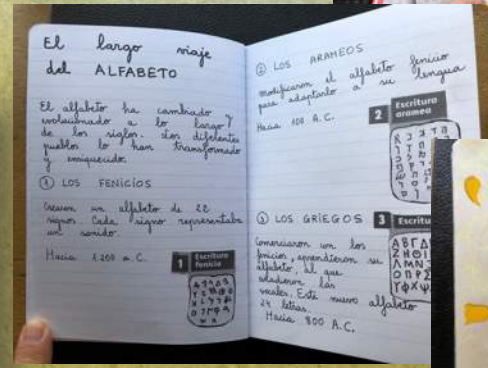 El largo viaje
del ALFABETO
El alfabeto ha cambiado y
evolucionado a lo largo
de los siglos. Los diferentes
pueblos lo han transformado
y enriquecido.
① LOS FENICIOS
Crearon un alfabeto de 22
signos. Cada signo representaba
un sonido.
Hacia 1200 a. C.
1 Escritura
fenicia
② LOS ARAMEOS
Modificaron el alfabeto fenicio
para adaptarlo a su lengua
Hacia 100 A.C.
2 Escritura
aramea
③ LOS GRIEGOS
Comerciaron con los
fenicios, aprendieron su
alfabeto, al que
añadieron las
vocales. Este nuevo alfabeto
24 letras.
Hacia 800 A.C.
3 Escritu
ΑΒΓΔ
ΖΗΘΙ
ΛΜΝΞ
ΟΠΡΣ
ΥΦΧΨ